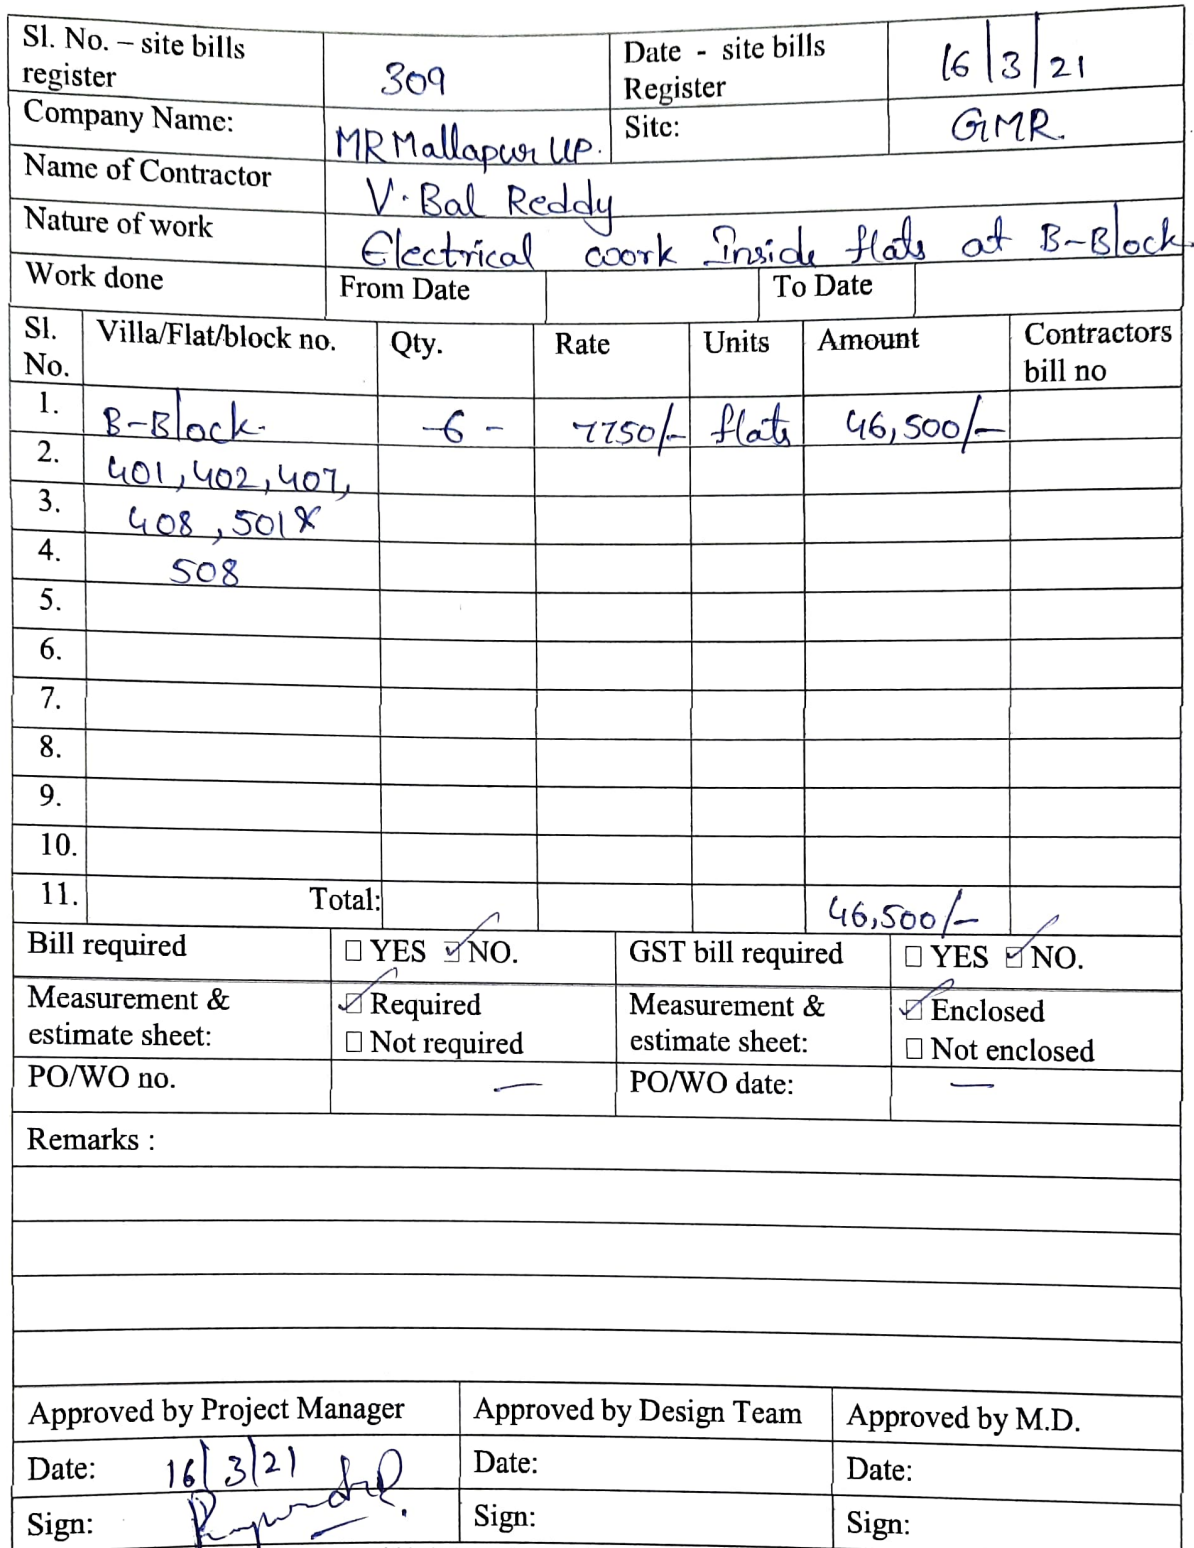 Sl. No. – site bills register 309 Date - site bills Register 16/3/21
Company Name: MR Mallapur LLP. Site: GMR.
Name of Contractor V. Bal Reddy
Nature of work Electrical work Inside flats at B-Block
Work done From Date To Date
Sl. No. Villa/Flat/block no. Qty. Rate Units Amount Contractors bill no
1. B-Block. -6- 7750/- flats 46,500/-
2. 401, 402, 407,
3. 408, 501 &
4. 508
5.
6.
7.
8.
9.
10.
11. Total: 46,500/-
Bill required ☐ YES ☑ NO. GST bill required ☐ YES ☑ NO.
Measurement & estimate sheet: ☑ Required ☐ Not required Measurement & estimate sheet: ☑ Enclosed ☐ Not enclosed
PO/WO no. — PO/WO date: —
Remarks :
Approved by Project Manager Approved by Design Team Approved by M.D.
Date: 16/3/21 Date: Date:
Sign: Sign: Sign: